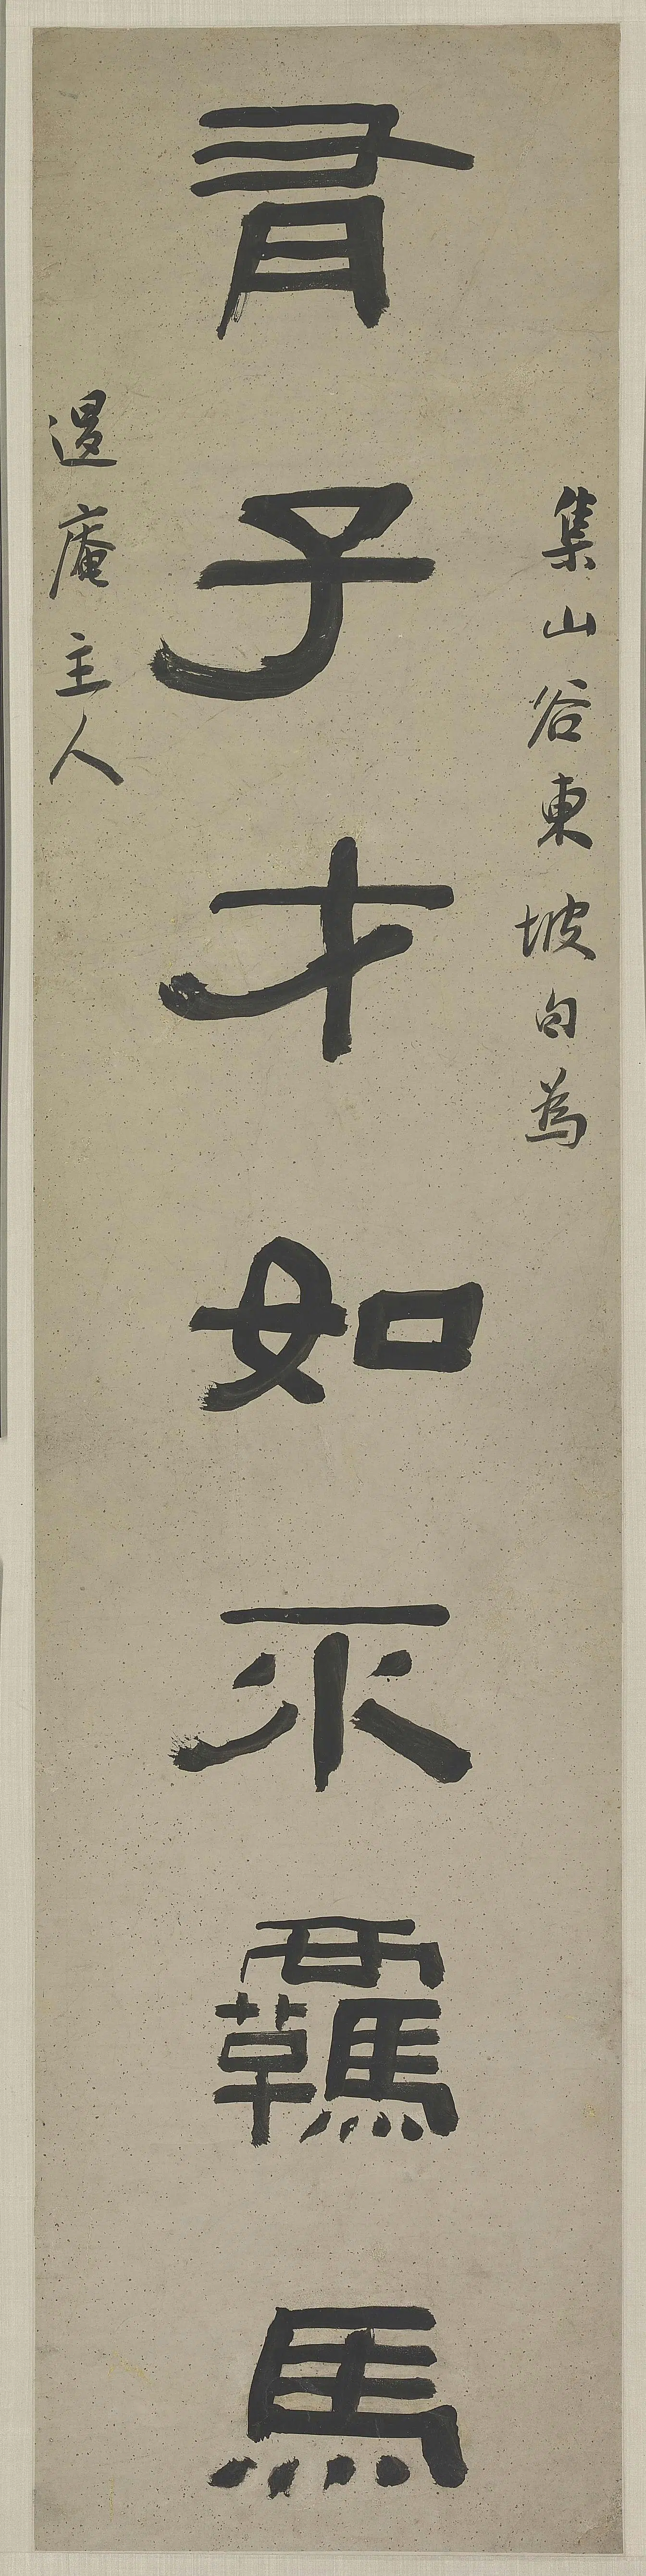 集山谷東坡句為
有子才如不羈馬
退庵主人